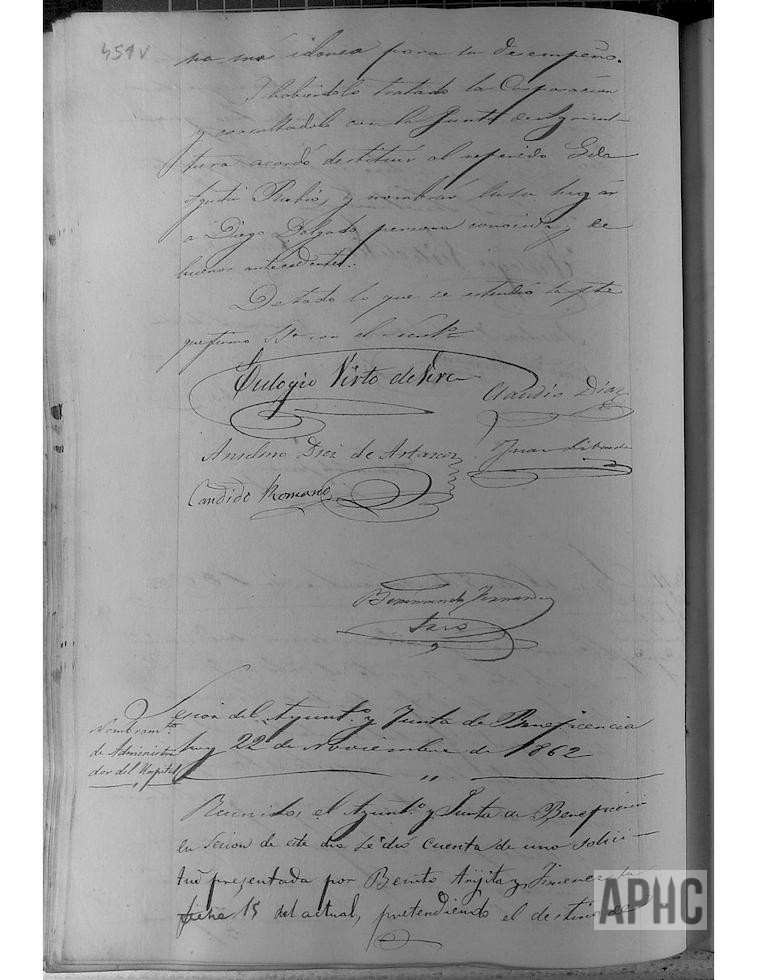 451 v
na mas idonea para su desempeño.
Y habiendolo tratado la Corporacion
y consultadolo con la Junta de Agricul-
tura acordó destituir al referido Guarda
Agustin Rubio, y nombrar en su lugar
a Diego Delgado, persona conocida, y de
buenos antecedentes.
De todo lo que se estendió la pte
que firma SSª con el Secretº
Eulogio Visto de Vera
Claudio Diaz
Anselmo Diez de Artazcoz
Juan
Candido Romano
Bienvenido Fernandez
Srio
Sesion del Ayuntº y Junta de Beneficencia
hoy 22 de Noviembre de 1862
Nombramto
de Administra
dor del Hospital
Reunidos el Ayuntº y Junta de Beneficencia
en Sesion de este dia se dió cuenta de una solici-
tud presentada por Benito y Jimenez
fecha 15 del actual, pretendiendo el destino de
APHC